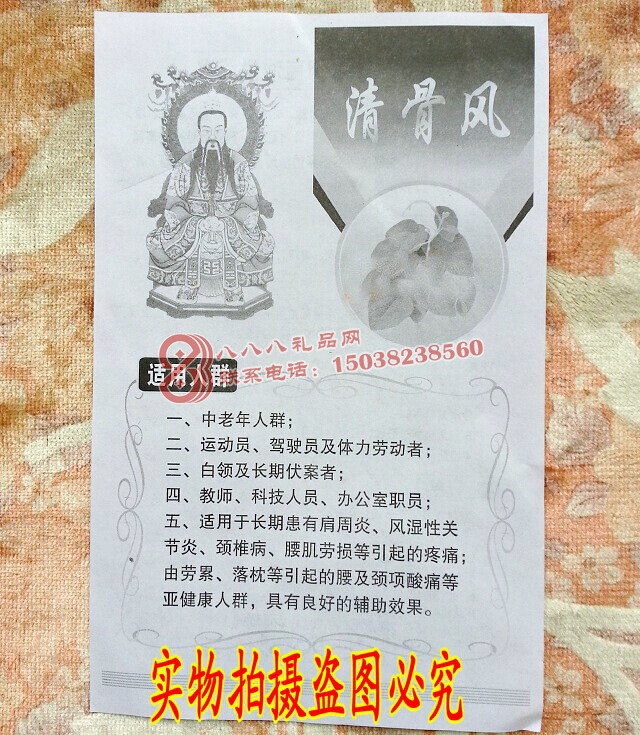 清骨风
八八八礼品网
联系电话：15038238560
适用人群
一、中老年人群；
二、运动员、驾驶员及体力劳动者；
三、白领及长期伏案者；
四、教师、科技人员、办公室职员；
五、适用于长期患有肩周炎、风湿性关
节炎、颈椎病、腰肌劳损等引起的疼痛；
由劳累、落枕等引起的腰及颈项酸痛等
亚健康人群，具有良好的辅助效果。
实物拍摄盗图必究